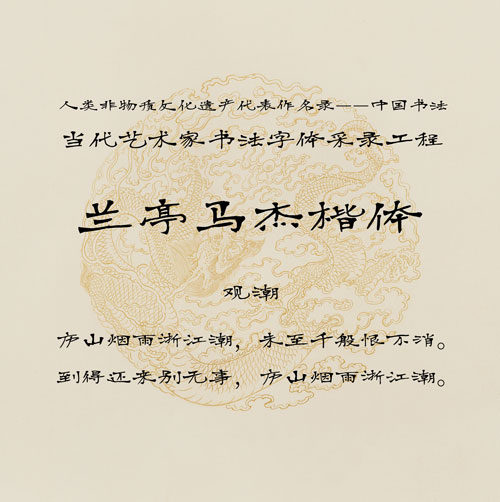 人类非物质文化遗产代表作名录——中国书法
当代艺术家书法字体采录工程
兰亭马杰楷体
观潮
庐山烟雨浙江潮，未至千般恨不消。
到得还来别无事，庐山烟雨浙江潮。